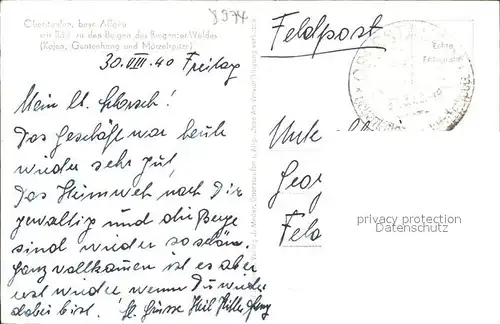 8974
Oberstaufen, bayr. Allgäu
mit Blick zu den Bergen des Bregenzer Waldes
(Kojen, Guntenhang und Mörzelspitze)
30. VIII. 40 Freitag
Mein lb. Schorsch!
Das Geschäft war heute
wieder sehr gut,
Das Heimweh nach Dir
gewaltig und die Berge
sind wieder so schön.
Ganz vollkommen ist es aber
erst wieder wenn Du wieder
dabei bist. Hl. Grüsse Heil Hitler
Feldpost
Echte
Fotografie
Unte
Geor
Feld
privacy protection
Datenschutz